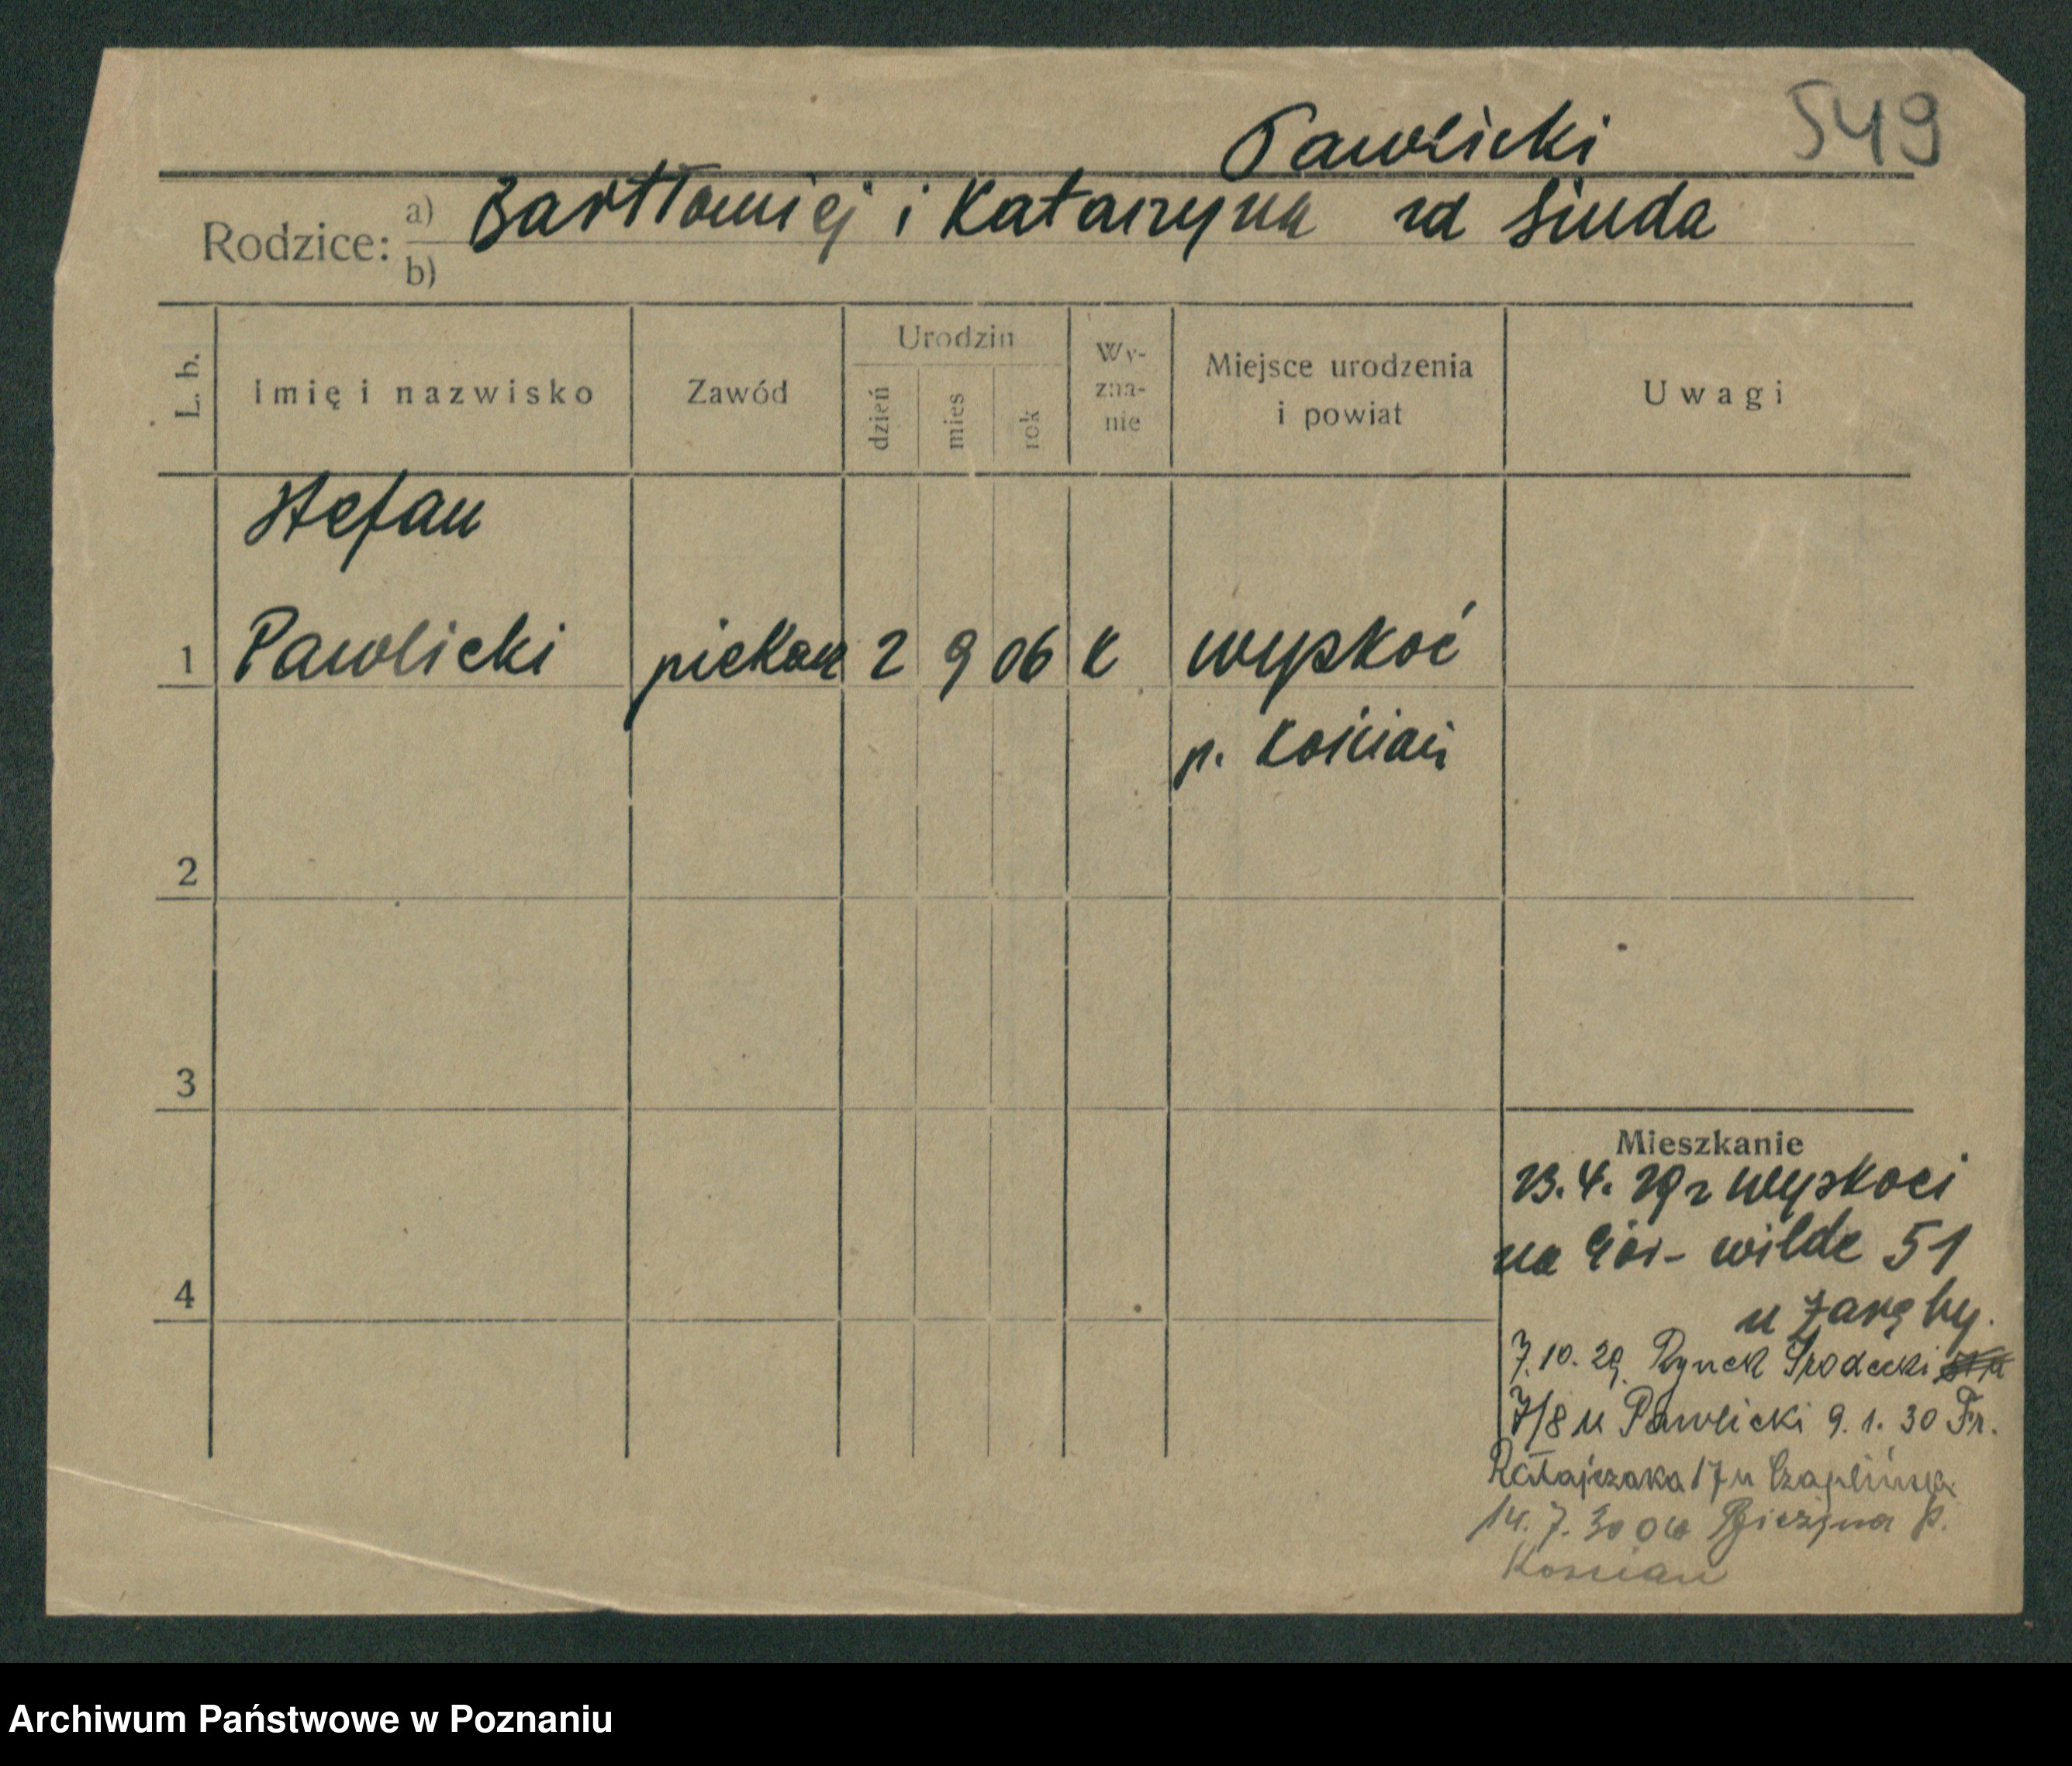 Pawlicki
549
Rodzice: a) Bartłomiej i Katarzyna zd Siuda
b)
L. b.
Imię i nazwisko
Zawód
Urodzin
dzień
mies
rok
Wy-
zna-
nie
Miejsce urodzenia
i powiat
Uwagi
Stefan
1 Pawlicki piekarz 2 9 06 k Wyskoć
p. Kościań
2
3
4
Mieszkanie
23.4.29 z Wyskoci
na Gór- Wilde 51
u Zaręby.
7.10.29. Rynek Srodecki
7/8 u Pawlicki 9.1.30 Fr.
Ratajczaka 17 u Czaplińska
14.7.30 p.
Koscian
Archiwum Państwowe w Poznaniu